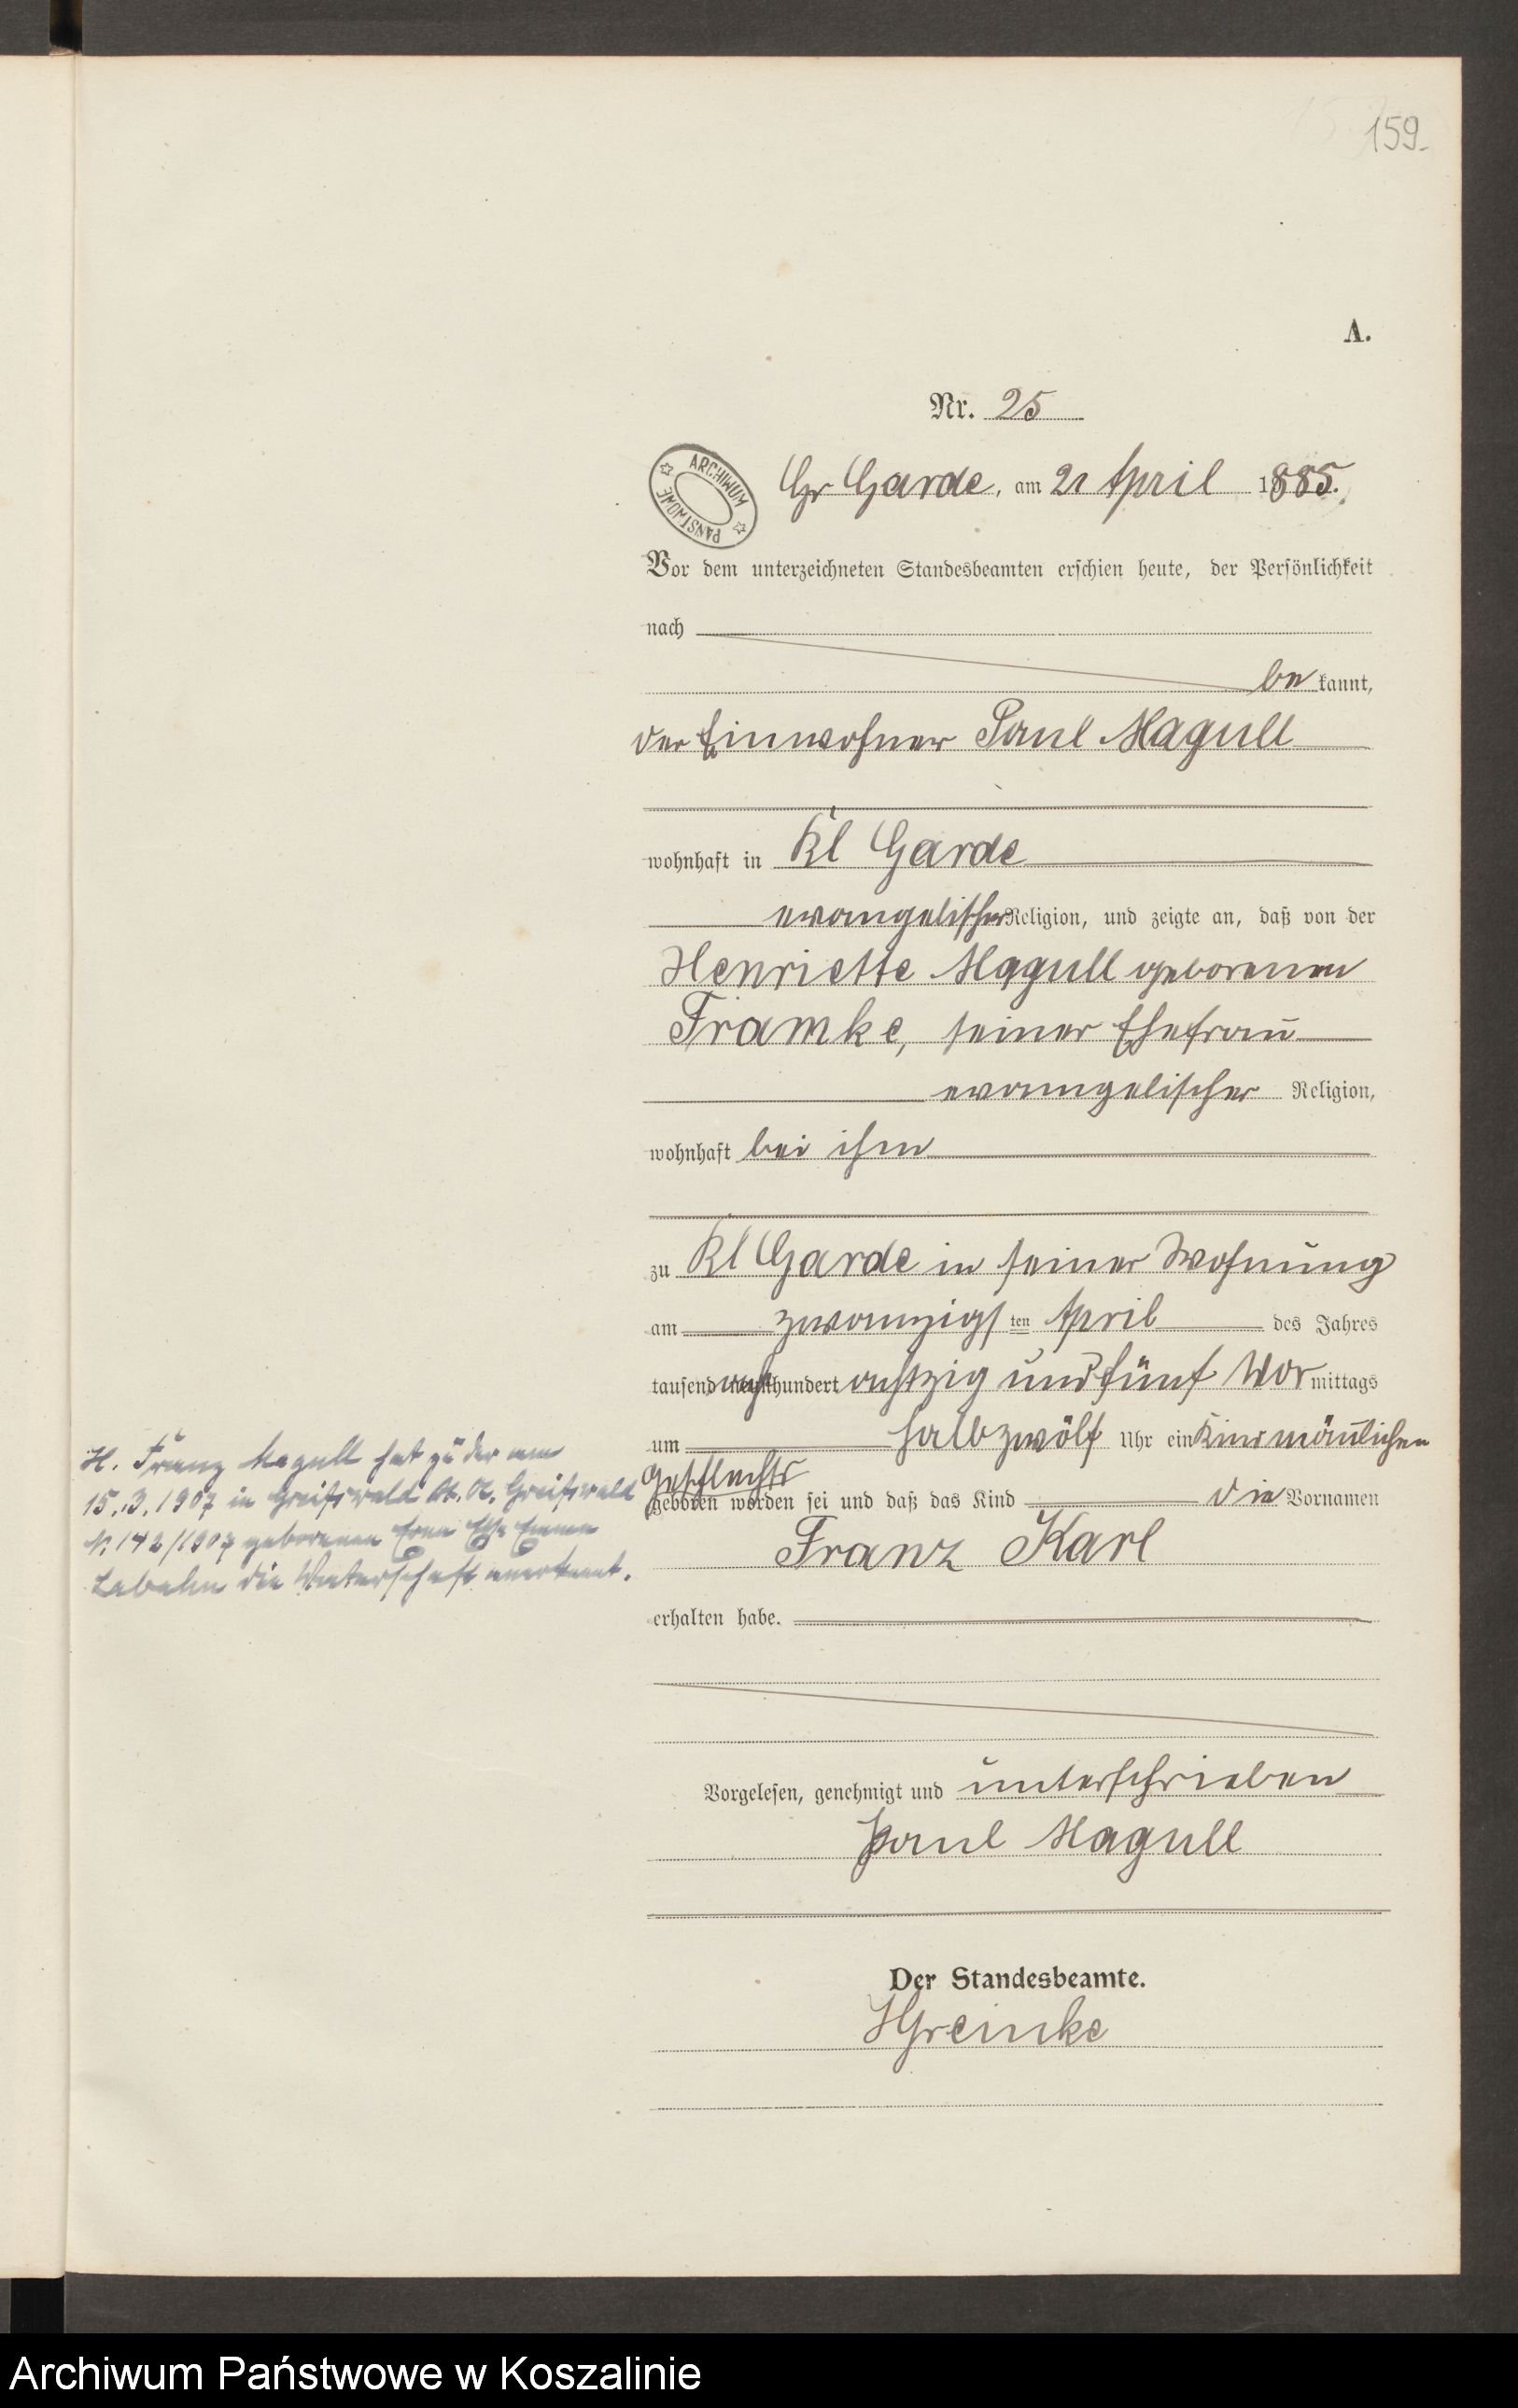 159.
A.
Nr. 25
ARCHIWUM PAŃSTWOWE
Gr Garde, am 21 April 1885.
Vor dem unterzeichneten Standesbeamten erschien heute, der Persönlichkeit
nach
be kannt,
der Einwohner Paul Magull
wohnhaft in Kl Garde
evangelischer Religion, und zeigte an, daß von der
Henriette Magull geborenen
Framke, seiner Ehefrau
evangelischer Religion,
wohnhaft bei ihm
zu Kl Garde in seiner Wohnung
am zwanzigsten April des Jahres
tausend acht hundert achtzig und fünf Vor mittags
um halb zwölf Uhr ein Kind mänlichen
Geschlechts
geboren worden sei und daß das Kind die Vornamen
Franz Karl
erhalten habe.
H. Franz Magull hat zu der am
15.3.1907 in Greifswald St. A. Greifswald
N. 142/1907 geborenen Erna Else Emma
Labahn die Vaterschaft anerkannt.
Vorgelesen, genehmigt und unterschrieben
Paul Magull
Der Standesbeamte.
HGreinke
Archiwum Państwowe w Koszalinie